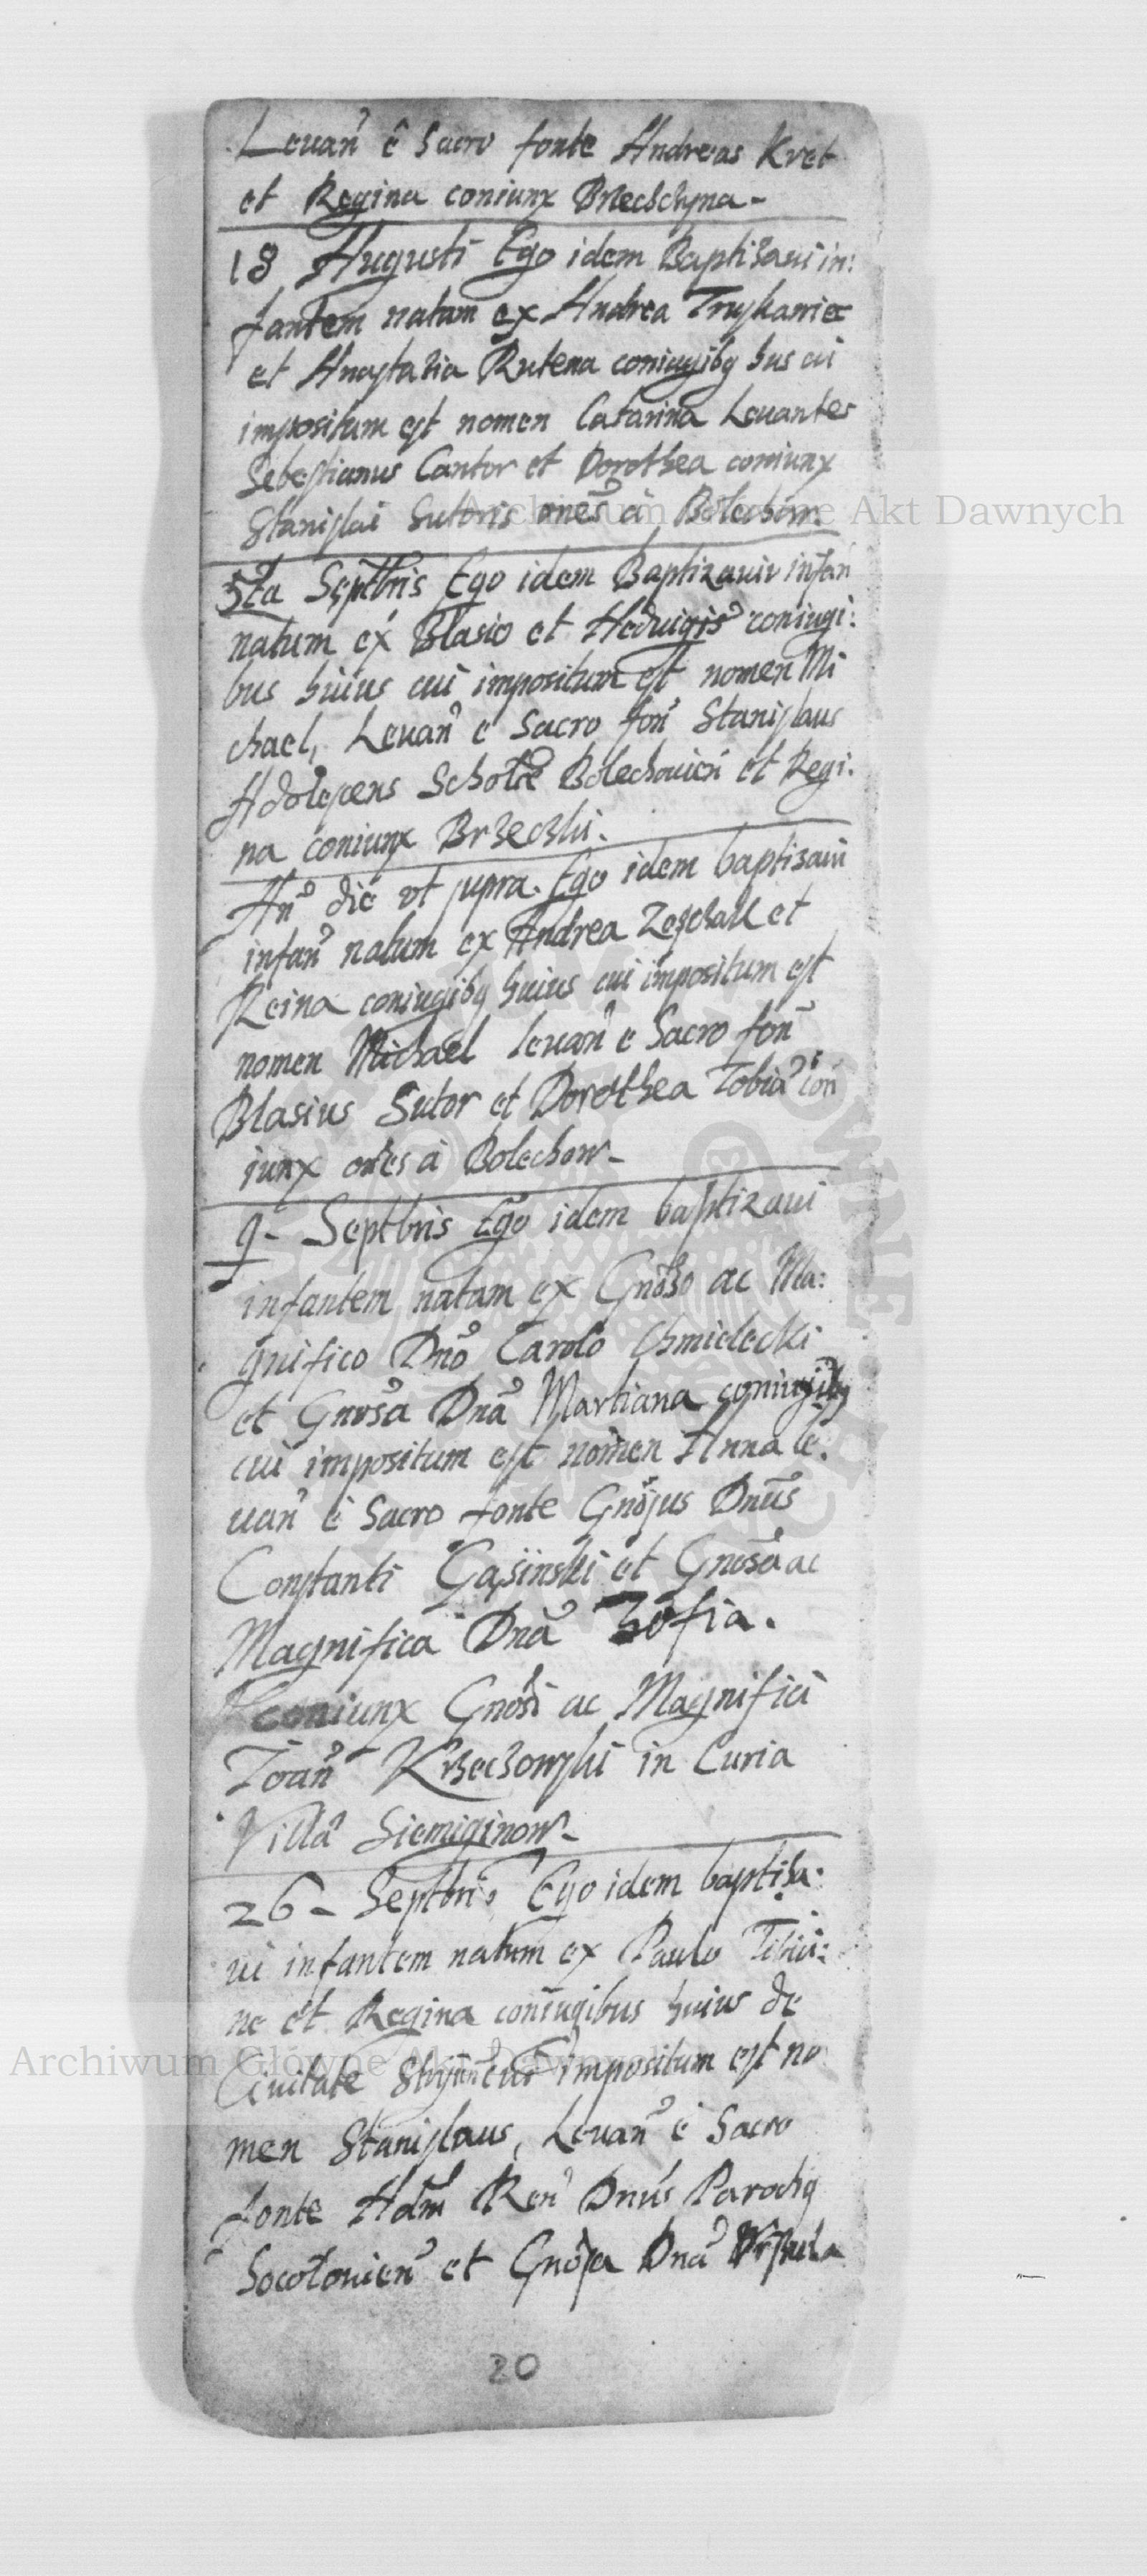 Leuan̄ ê Sacro fonte Andreas Kret
et Regina coniunx Brzechchyna-
18 Augusti Ego idem Baptisaui in:
fantem natam ex Andrea Truskawiec
et Anastasia Rutena coniugibq hus cui
impositum est nomen Catarina Leuantes
Sebestianus Cantor et Dorothea coniunx
Stanislai Sutoris ones à Bolechow.
5ta Septbris Ego idem Baptizaui infan
natum ex Blasio et Heduigis coniugi:
bus huius cui impositum est nomen Mi
chael, Leuan̄ e Sacro fon̄ Stanislaus
Adolescens Scholae Bolechouien̄ et Regi:
na coniunx Brzechli.
An̄ die vt supra. Ego idem baptisaui
infan̄ natum ex Andrea et
Reina coniugibq huius cui impositum est
nomen Michael leuan̄ e Sacro fon̄
Blasius Sutor et Dorothea Tobia con
iunx on̄es à Bolechow-
9- Septbris Ego idem baptizaui
infantem natam ex Gnoso ac Ma:
gnifico Dnō Carolo Chmielecki
et Gnosa Dnā Martiana coniugibq
cui impositum est nomen Anna le:
uan̄ è Sacro fonte Gnosus Dnūs
Constanti Gąsiinski et Gnosa ac
Magnifica Dnā Zofia.
coniunx Gnosi ac Magnifici
Joan̄ Krzechowski in Curia
Villa Siemiginow-
26- Septbris Ego idem baptisa:
ui infantem natum ex Paulo Tibici:
ne et Regina coniugibus huius de
Ciuitate Stryien̄ cui impositum est no
men Stanislaus, Leuan̄ è Sacro
fonte Adm̄ Ren̄ Dnūs Parochq
Socolouien̄ et Gnosa Dnā Vrsula
20
Archiwum Główne Akt Dawnych
Archiwum Główne Akt Dawnych